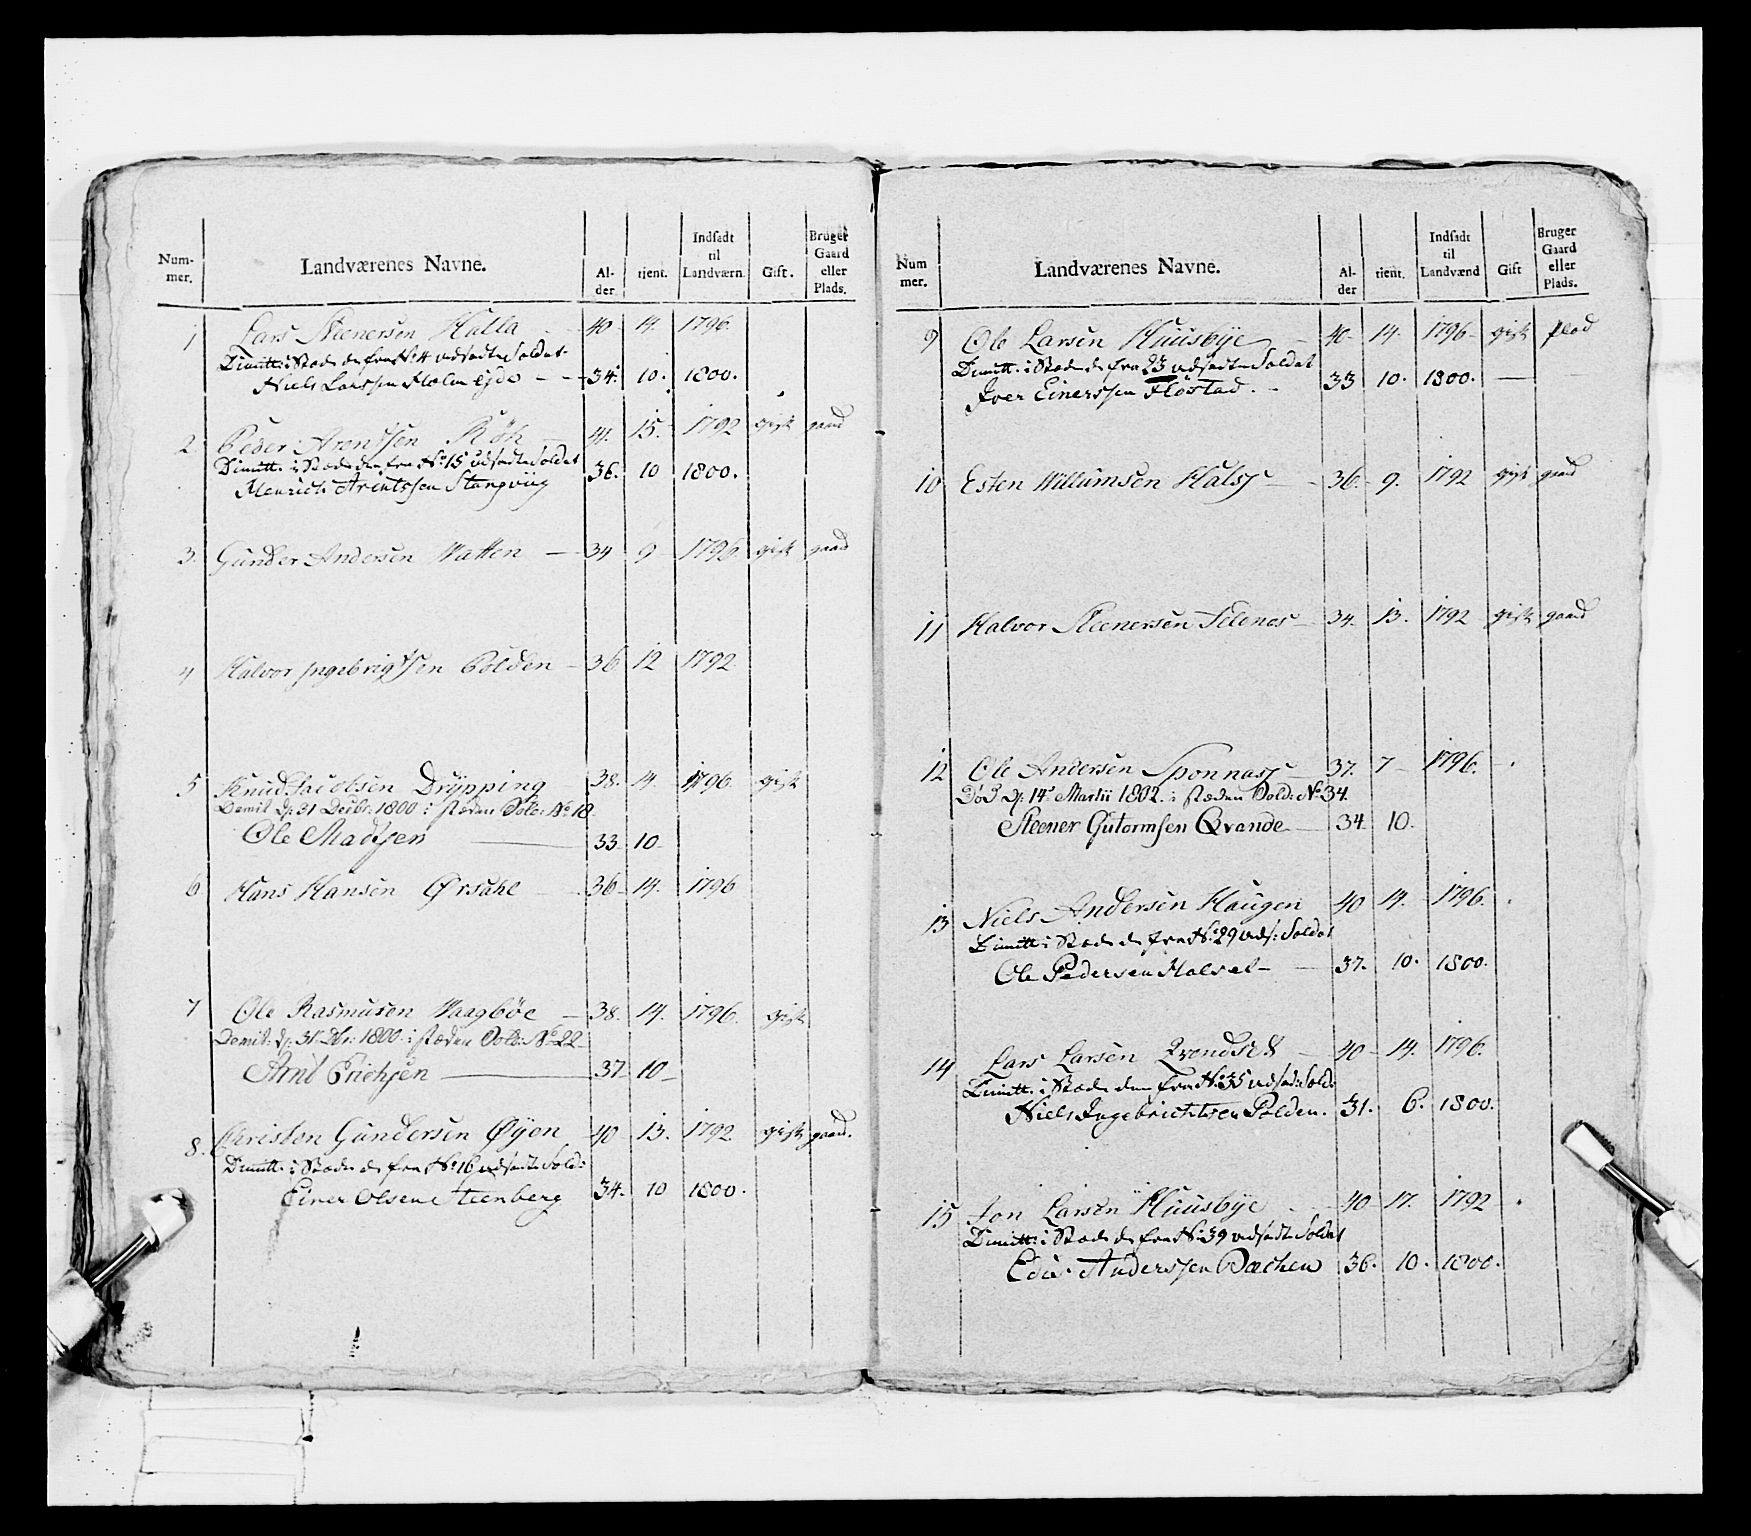 Num-
mer.
Landværenes Navne.
Al-
der
tjent.
Indsadt
til
Landværn.
Gift.
Bruger
Gaard
eller
Plads.
1 Lars Steenersen Halla 40 14. 1796.
Dimitt: i Stæden fra No 4 udsadte Soldat
Niels Larssen Holmeyde 34. 10. 1800.
2 Peder Arentsen Røh 41. 15. 1792 gift gaard
Dimitt: i Stæden den fra No 15 udsadte Soldat
Henrich Arentssen Stangviig 36. 10 1800.
3. Gunder Andersen Vatten 34 9 1796 gift gaard
4 Halvor Ingebrigtsen Polden 36 12 1792
5 Knud Jacobsen Drøpping 38. 14. 1796. gift
Demit. d: 31 Decbr: 1800 i stæden Sold: No 18
Ole Madtsen 33. 10
6 Hans Hansen Ørsahl 36 14. 1796
7 Ole Rasmusen Vaagbøe 38. 14. 1796. gift
Demit: d: 31 Dbr: 1800 i stæden Sold: No 22
Arnt Erichsen 37 10
8. Christen Gundersen Øyen 40 13. 1792 gift gaard.
Dimitt: i Stæden fra No 16 udsadte Sold:
Einer Olsen Steenberg 34. 10 1800.
Num
mer.
Landværenes Navne.
Al-
der
tient.
Indsadt
til
Landværnd
Gift
Bruger
Gaard
eller
Plads.
9 Ole Larsen Huusbye 40 14. 1796 gift Plad
Dimitt: i Stæden fra 23 udsadte Soldat
Iver Einerssen Flöstad. 33 10. 1800.
10 Esten Willumsen Halss 36. 9. 1792 gift gaard
11 Halvor Steenersen Selenes 34. 13. 1792 gift gaard
12 Ole Andersen Sponnass 37. 7 1796.
Död d: 14 Martii 1802. i stæden Sold: No 34.
Steener Gutormsen Qvande 34 10.
13 Niels Andersen Haugen 40 14. 1796.
Dimitt: i Stæden fra No 29 uds: Soldat
Ole Pedersen Halset 37. 10. 1800.
14 Lars Larsen Qvendset 40 14. 1796.
Dimitt: i Stæden den fra No 35 udsad: Sold:
Niels Ingebrichtsen Polden. 31. 6. 1800.
15 Jon Larsen Huusbye 40 17. 1792
Dimitt: i Stæden fra No 39 udsadte Soldat
Anderssen Bachen 36. 10. 1800.